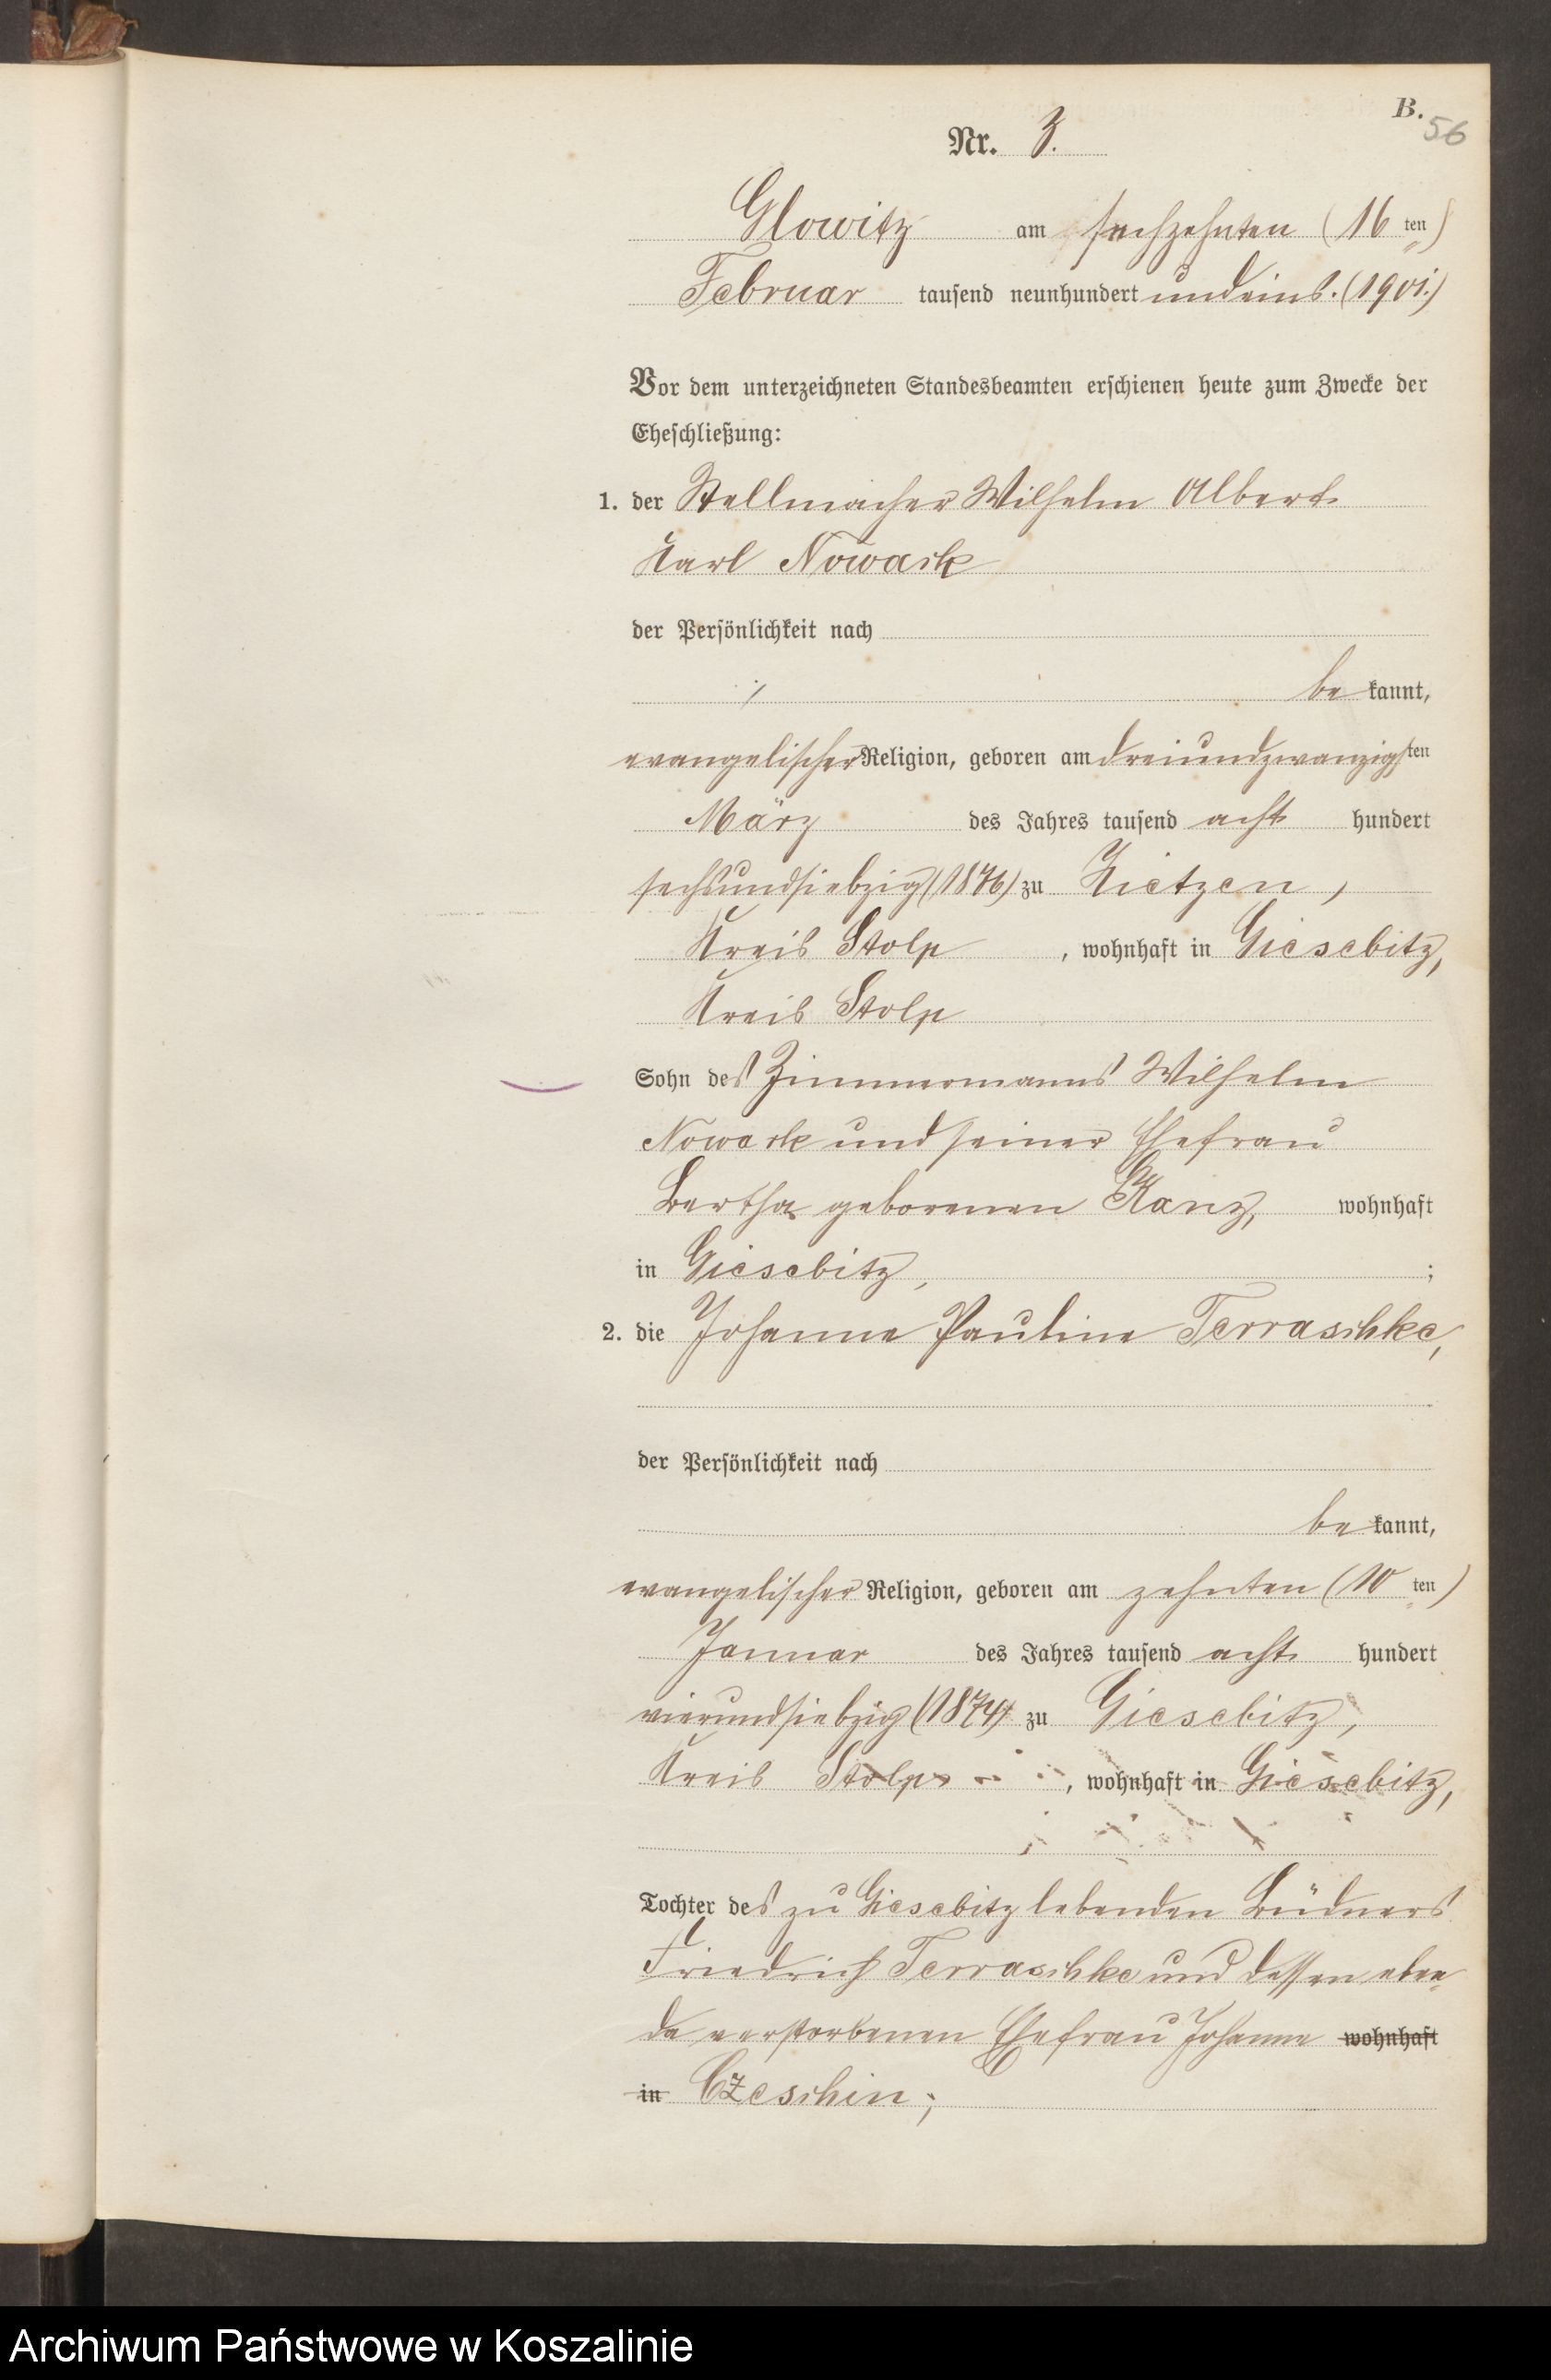 B.
56
Nr. 3.
Glowitz am sechzehnten (16 ten)
Februar tausend neunhundert und eins. (1901.)
Vor dem unterzeichneten Standesbeamten erschienen heute zum Zwecke der
Eheschließung:
1. der Stellmacher Wilhelm Albert
Karl Nowack
der Persönlichkeit nach
be kannt,
evangelischer Religion, geboren am dreiundzwanzigsten
März des Jahres tausend acht hundert
sechsundsiebzig (1876) zu Zietzen,
Kreis Stolp, wohnhaft in Giesebitz,
Kreis Stolp
Sohn des Zimmermanns Wilhelm
Nowack und seiner Ehefrau
Bertha geborenen Ranz, wohnhaft
in Giesebitz, ;
2. die Johanne Pauline Terraschke,
der Persönlichkeit nach
be kannt,
evangelischer Religion, geboren am zehnten (10 ten)
Januar des Jahres tausend acht hundert
vierundsiebzig (1874) zu Giesebitz,
Kreis Stolp, wohnhaft in Giesebitz,
Tochter des zu Giesebitz lebenden Büdners
Friedrich Terraschke und dessen eben-
da verstorbenen Ehefrau Johanne wohnhaft
in Czeschin;
Archiwum Państwowe w Koszalinie